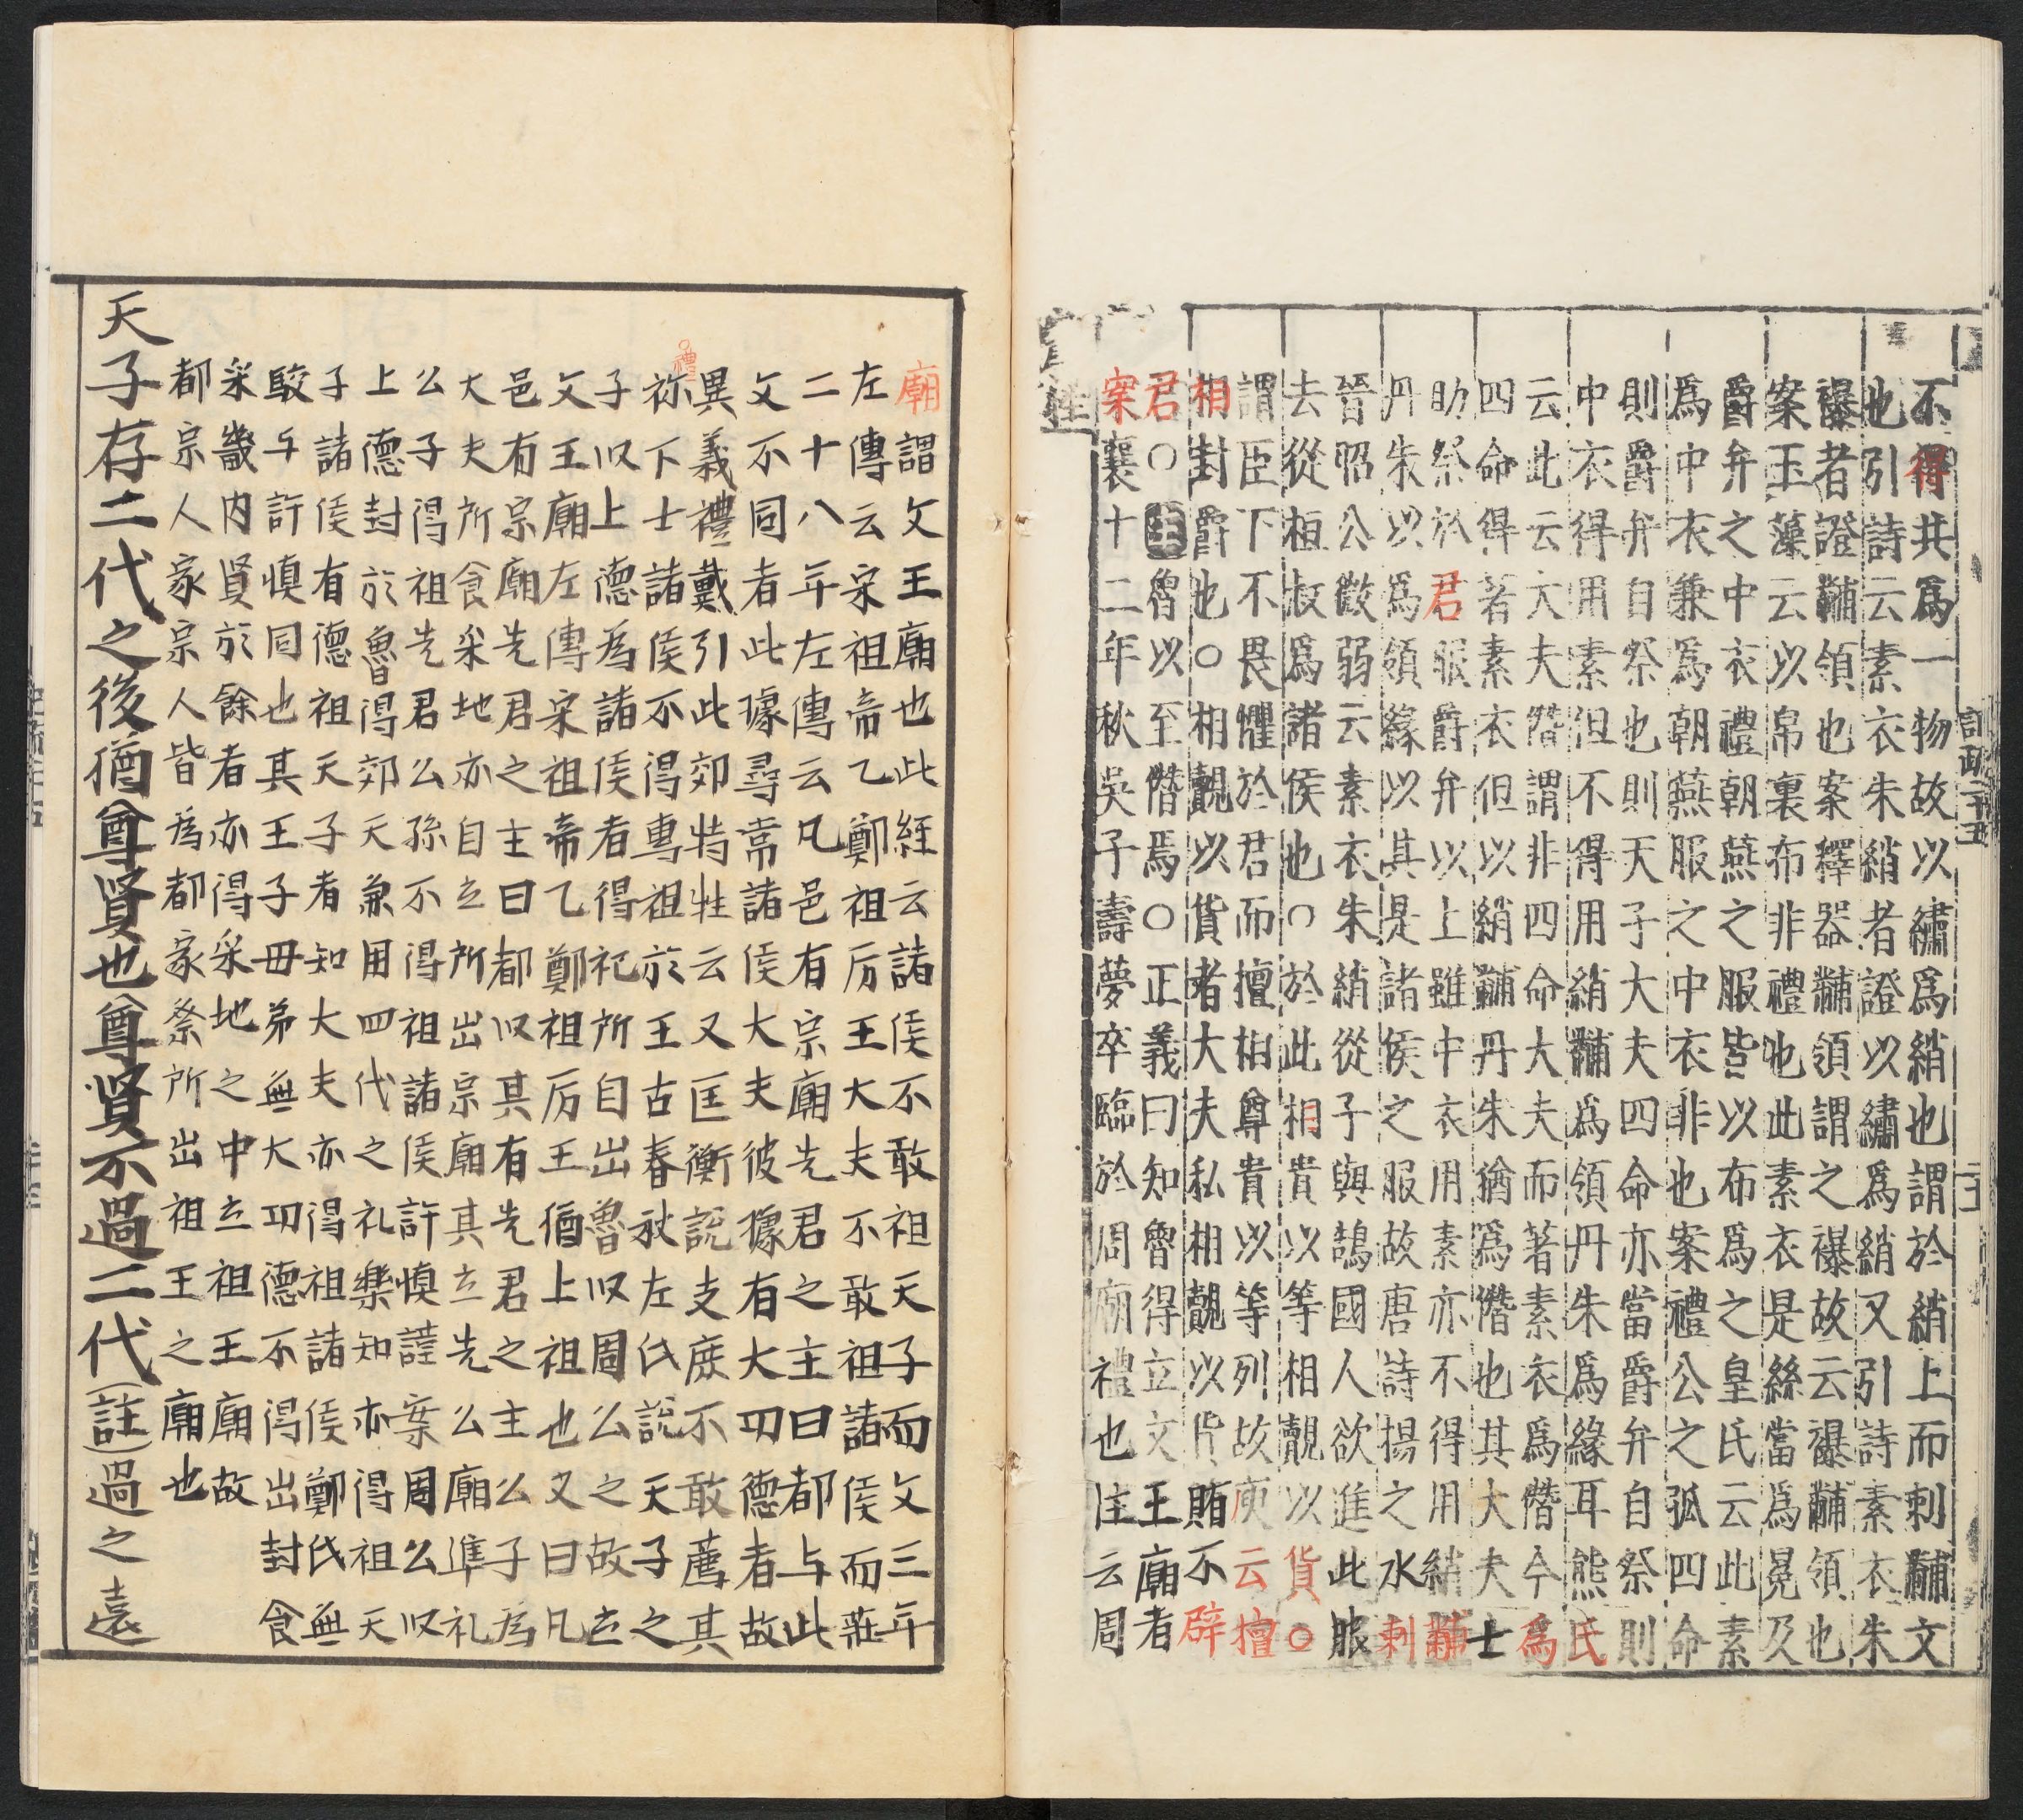 不得共爲一物故以繡爲綃也謂於綃上而刺黼文
也引詩云素衣朱綃者證以繡爲綃又引詩素衣朱
襮者證黼領也案釋器黼領謂之襮故云襮黼領也
案玉藻云以帛裏布非禮也此素衣是絲當爲冕及
爵弁之中衣禮朝燕之服皆以布爲之皇氏云此素
爲中衣兼爲朝燕服之中衣非也案禮公之孤四命
則爵弁自祭也則天子大夫四命亦當爵弁自祭則
中衣得用素但不得用綃黼爲領丹朱爲緣耳熊氏
云此云大夫僭謂非四命大夫而著素衣爲僭今爲
四命得著素衣但以綃黼丹朱猶爲僭也其大夫士
助祭於君服爵弁以上雖中衣用素亦不得用綃黼
丹朱以爲領緣以其是諸侯之服故唐詩揚之水刺
晉昭公微弱云素衣朱綃從子與鵠國人欲進此服
去從桓叔爲諸侯也○於此相貴以等相覿以貨○
謂臣下不畏懼於君而擅相尊貴以等列故庾云擅
相封爵也○相覿以貨者大夫私相覿以貨賄不辟
君○注魯以至僭焉○正義曰知魯得立文王廟者
案襄十二年秋吳子壽夢卒臨於周廟禮也注云周
廟謂文王廟也此經云諸侯不敢祖天子而文三年
左傳云宋祖帝乙鄭祖厉王大夫不敢祖諸侯而莊
二十八年左傳云凡邑有宗廟先君之主曰都与此
文不同者此㨿尋常諸侯大夫彼㨿有大功德者故
異義禮戴引此郊特牲云又匡衡說支庶不敢薦其
祢下士諸侯不得專祖於王古春秋左氏說天子之
子以上德為諸侯者得祀所自出魯以周公之故立
文王廟左傳宋祖帝乙鄭祖厉王猶上祖也又曰凡
邑有宗廟先君之主曰都以其有先君之主公子為
大夫所食采地亦自立所出宗廟其立先公廟準礼
公子得祖先君公孫不得祖諸侯許慎謹案周公以
上德封於魯得郊天兼用四代之礼樂知亦得祖天
子諸侯有德祖天子者知大夫亦得祖諸侯鄭氏無
駮与許慎同也其王子母弟無大功德不得出封食
采畿内賢於餘者亦得采地之中立祖王廟故
都宗人家宗人皆為都家祭所出祖王之廟也
天子存二代之後猶尊賢也尊賢不過二代(註)過之遠